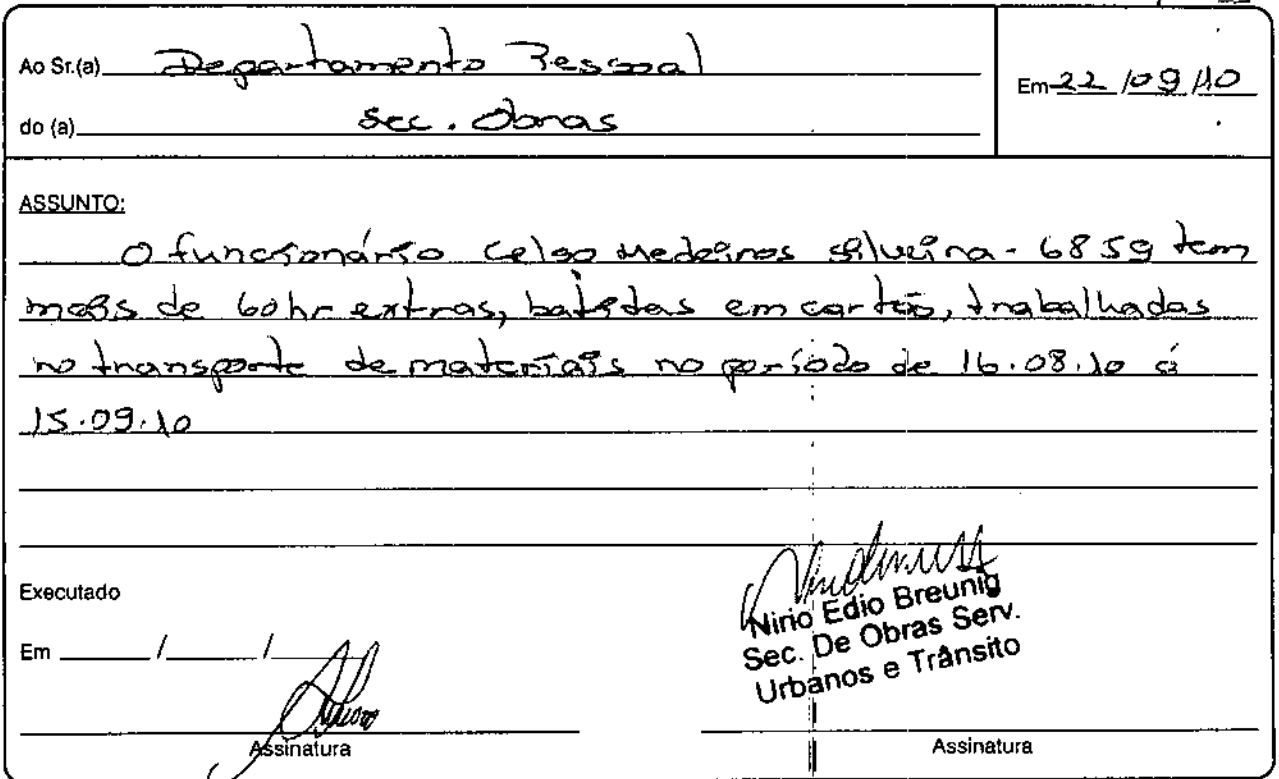 Ao Sr.(a) Departamento Pessoal
Em 22/09/10
do (a) Sec. Obras
ASSUNTO:
O funcionário Celso Medeiros Silveira - 6859 tem
mais de 60 hr extras, batidas em cartão, trabalhadas
no transporte de materiais no período de 16.08.10 á
15.09.10
Executado
Em / /
Nirio Edio Breunig
Sec. De Obras Serv.
Urbanos e Trânsito
Assinatura
Assinatura